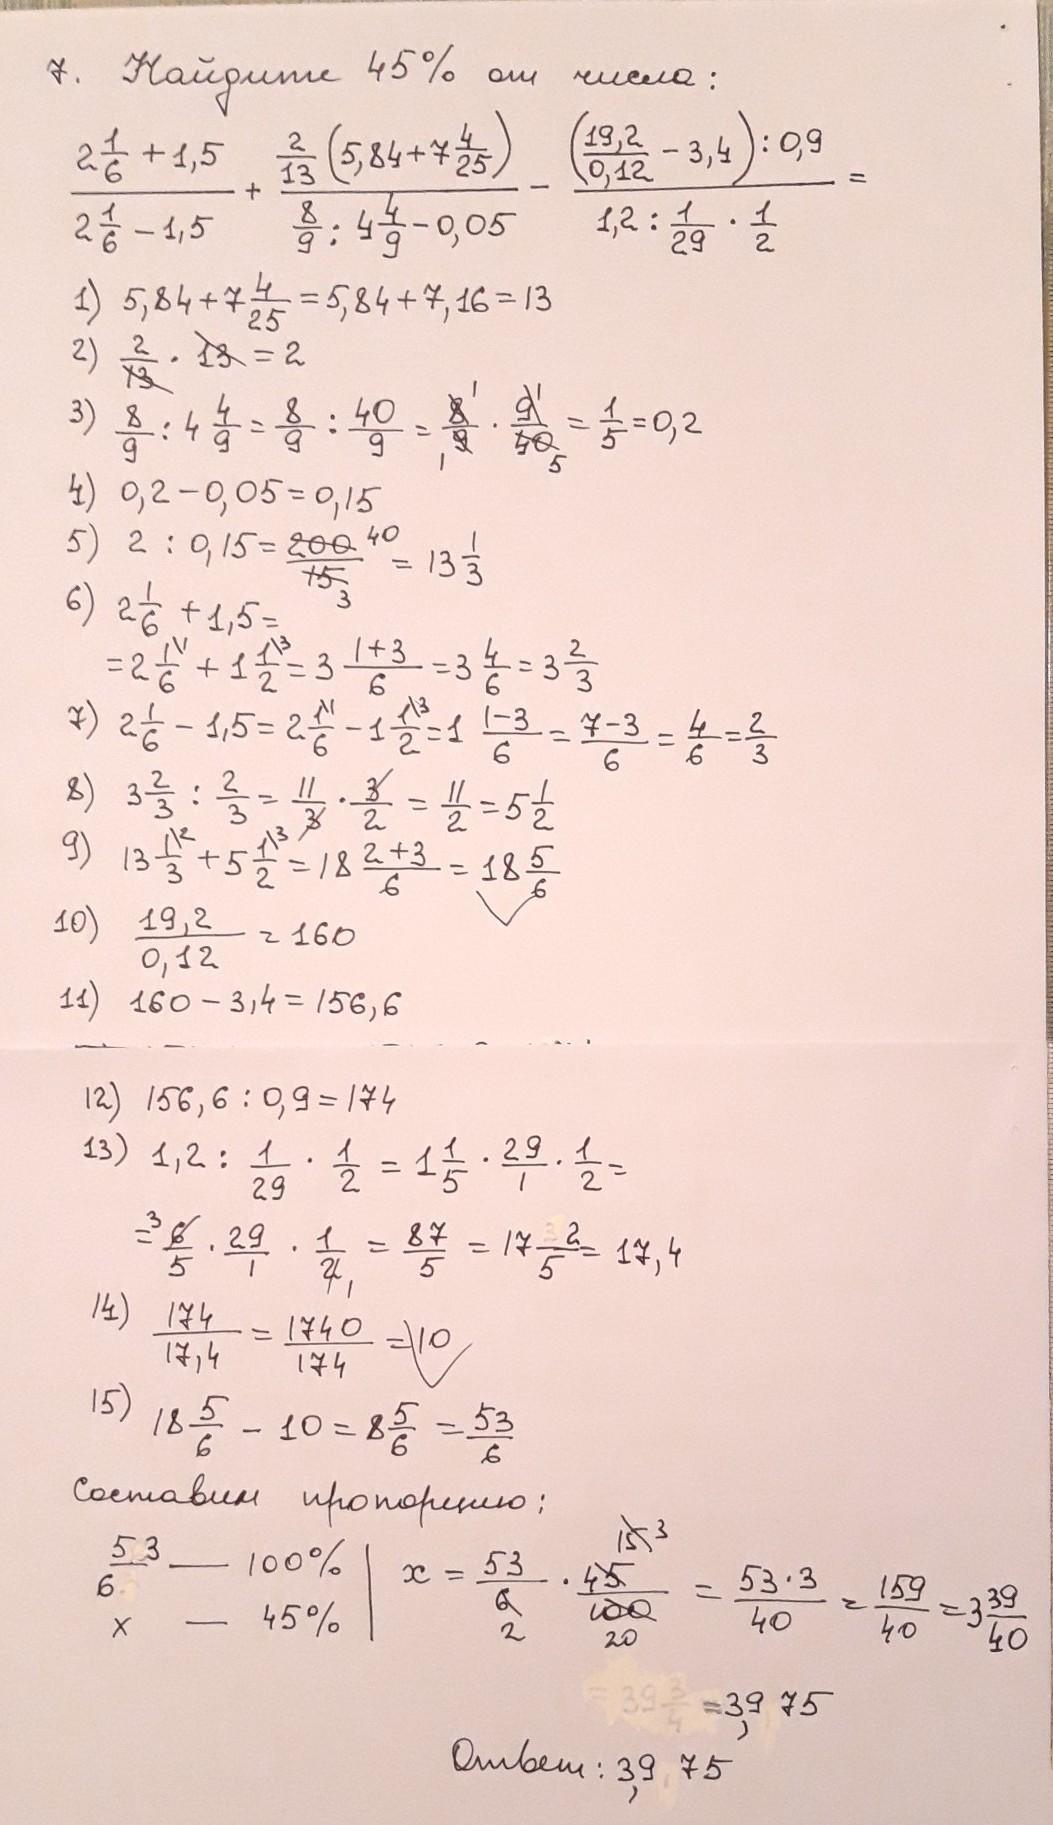 7. Найдите 45% от числа:
(2 1/6 + 1,5)/(2 1/6 − 1,5) + (2/13 (5,84 + 7 4/25))/(8/9 : 4 4/9 − 0,05) − ((19,2/0,12 − 3,4) : 0,9)/(1,2 : 1/29 · 1/2) =
1) 5,84 + 7 4/25 = 5,84 + 7,16 = 13
2) 2/13 · 13 = 2
3) 8/9 : 4 4/9 = 8/9 : 40/9 = 8/9 · 9/40 = 1/5 = 0,2
4) 0,2 − 0,05 = 0,15
5) 2 : 0,15 = 200/15 40/3 = 13 1/3
6) 2 1/6 + 1,5 =
= 2 1\1/6 + 1 1\3/2 = 3 (1+3)/6 = 3 4/6 = 3 2/3
7) 2 1/6 − 1,5 = 2 1\1/6 − 1 1\3/2 = 1 (1−3)/6 = (7−3)/6 = 4/6 = 2/3
8) 3 2/3 : 2/3 = 11/3 · 3/2 = 11/2 = 5 1/2
9) 13 1\2/3 + 5 1\3/2 = 18 (2+3)/6 = 18 5/6
10) 19,2/0,12 = 160
11) 160 − 3,4 = 156,6
12) 156,6 : 0,9 = 174
13) 1,2 : 1/29 · 1/2 = 1 1/5 · 29/1 · 1/2 =
= 6/5 · 29/1 · 1/2 = 87/5 = 17 2/5 = 17,4
14) 174/17,4 = 1740/174 = 10
15) 18 5/6 − 10 = 8 5/6 = 53/6
Составим пропорцию:
53/6 — 100%
x — 45%
x = 53/6 · 45/100 = 53·3/40 = 159/40 = 3 39/40
= 39 3/4 = 3,975
Ответ: 3,975